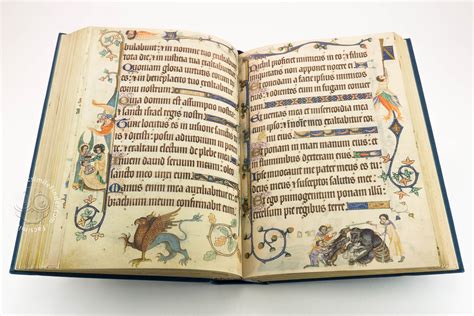 bulabunt et in nomine tuo
tota die et in iusticia tua exaltabuntur
Quoniam gloria uirtutis eorum
es et in beneplacito tuo exaltabitur
Quia domini est assumpcio
sancti israel regis nostri
Tunc locutus es in uisione sanctis
tuis et dixisti posui adiutorium in
potente et exaltaui electum de plebe
Inueni dauid seruum meum oleo
sancto meo unxi eum
Manus enim mea auxiliabitur
brachium meum confirmabit eum
Nichil proficiet inimicus in eo et
filius iniquitatis non apponet nocere ei
Et concidam a facie ipsius inimicos
eius et odientes eum in fugam conuertam
et in nomine meo exaltabitur cornu
eius
Et ponam in mari manum eius et in
fluminibus dexteram eius
Ipse inuocauit me pater meus es tu
deus meus et susceptor salutis mee
Et ego primogenitum ponam illum
pre regibus terre